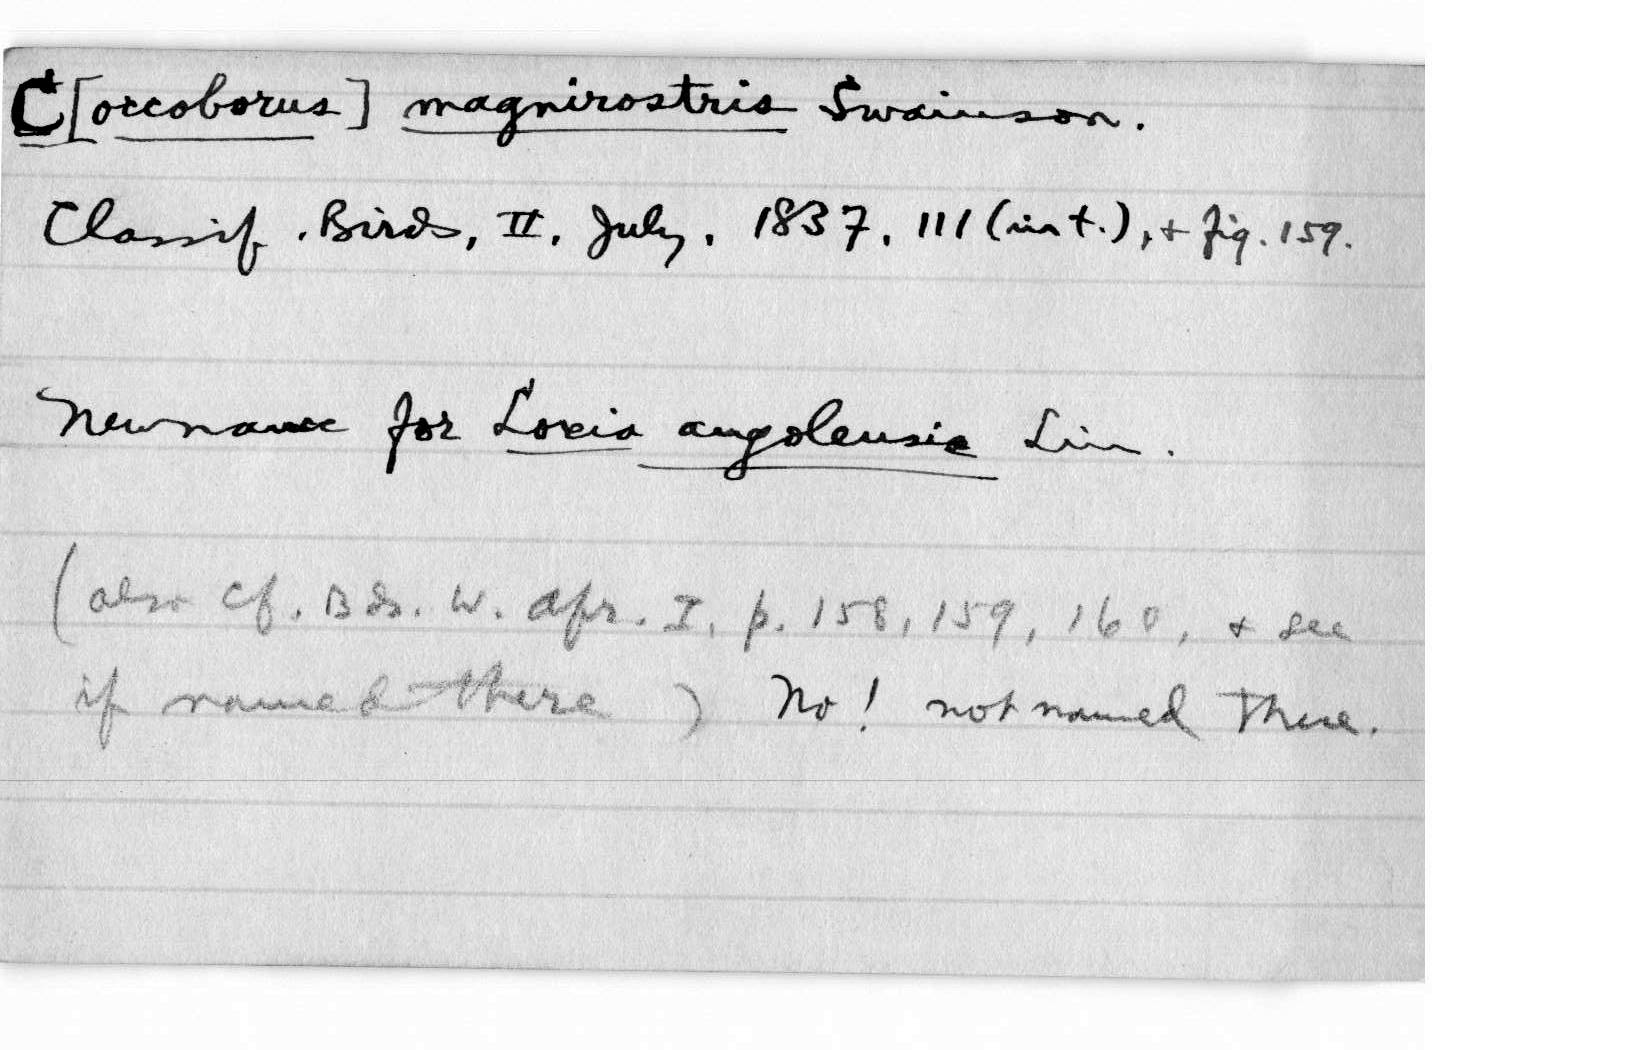 C[occoborus] magnirostris Swainson.
Classif. Birds, II, July, 1837, 111 (in t.), + fig. 159.
New name for Loxia angolensis Lin.
(also cf. Bds. W. Afr. I, p. 158, 159, 160, + see
if named there) No! not named there.